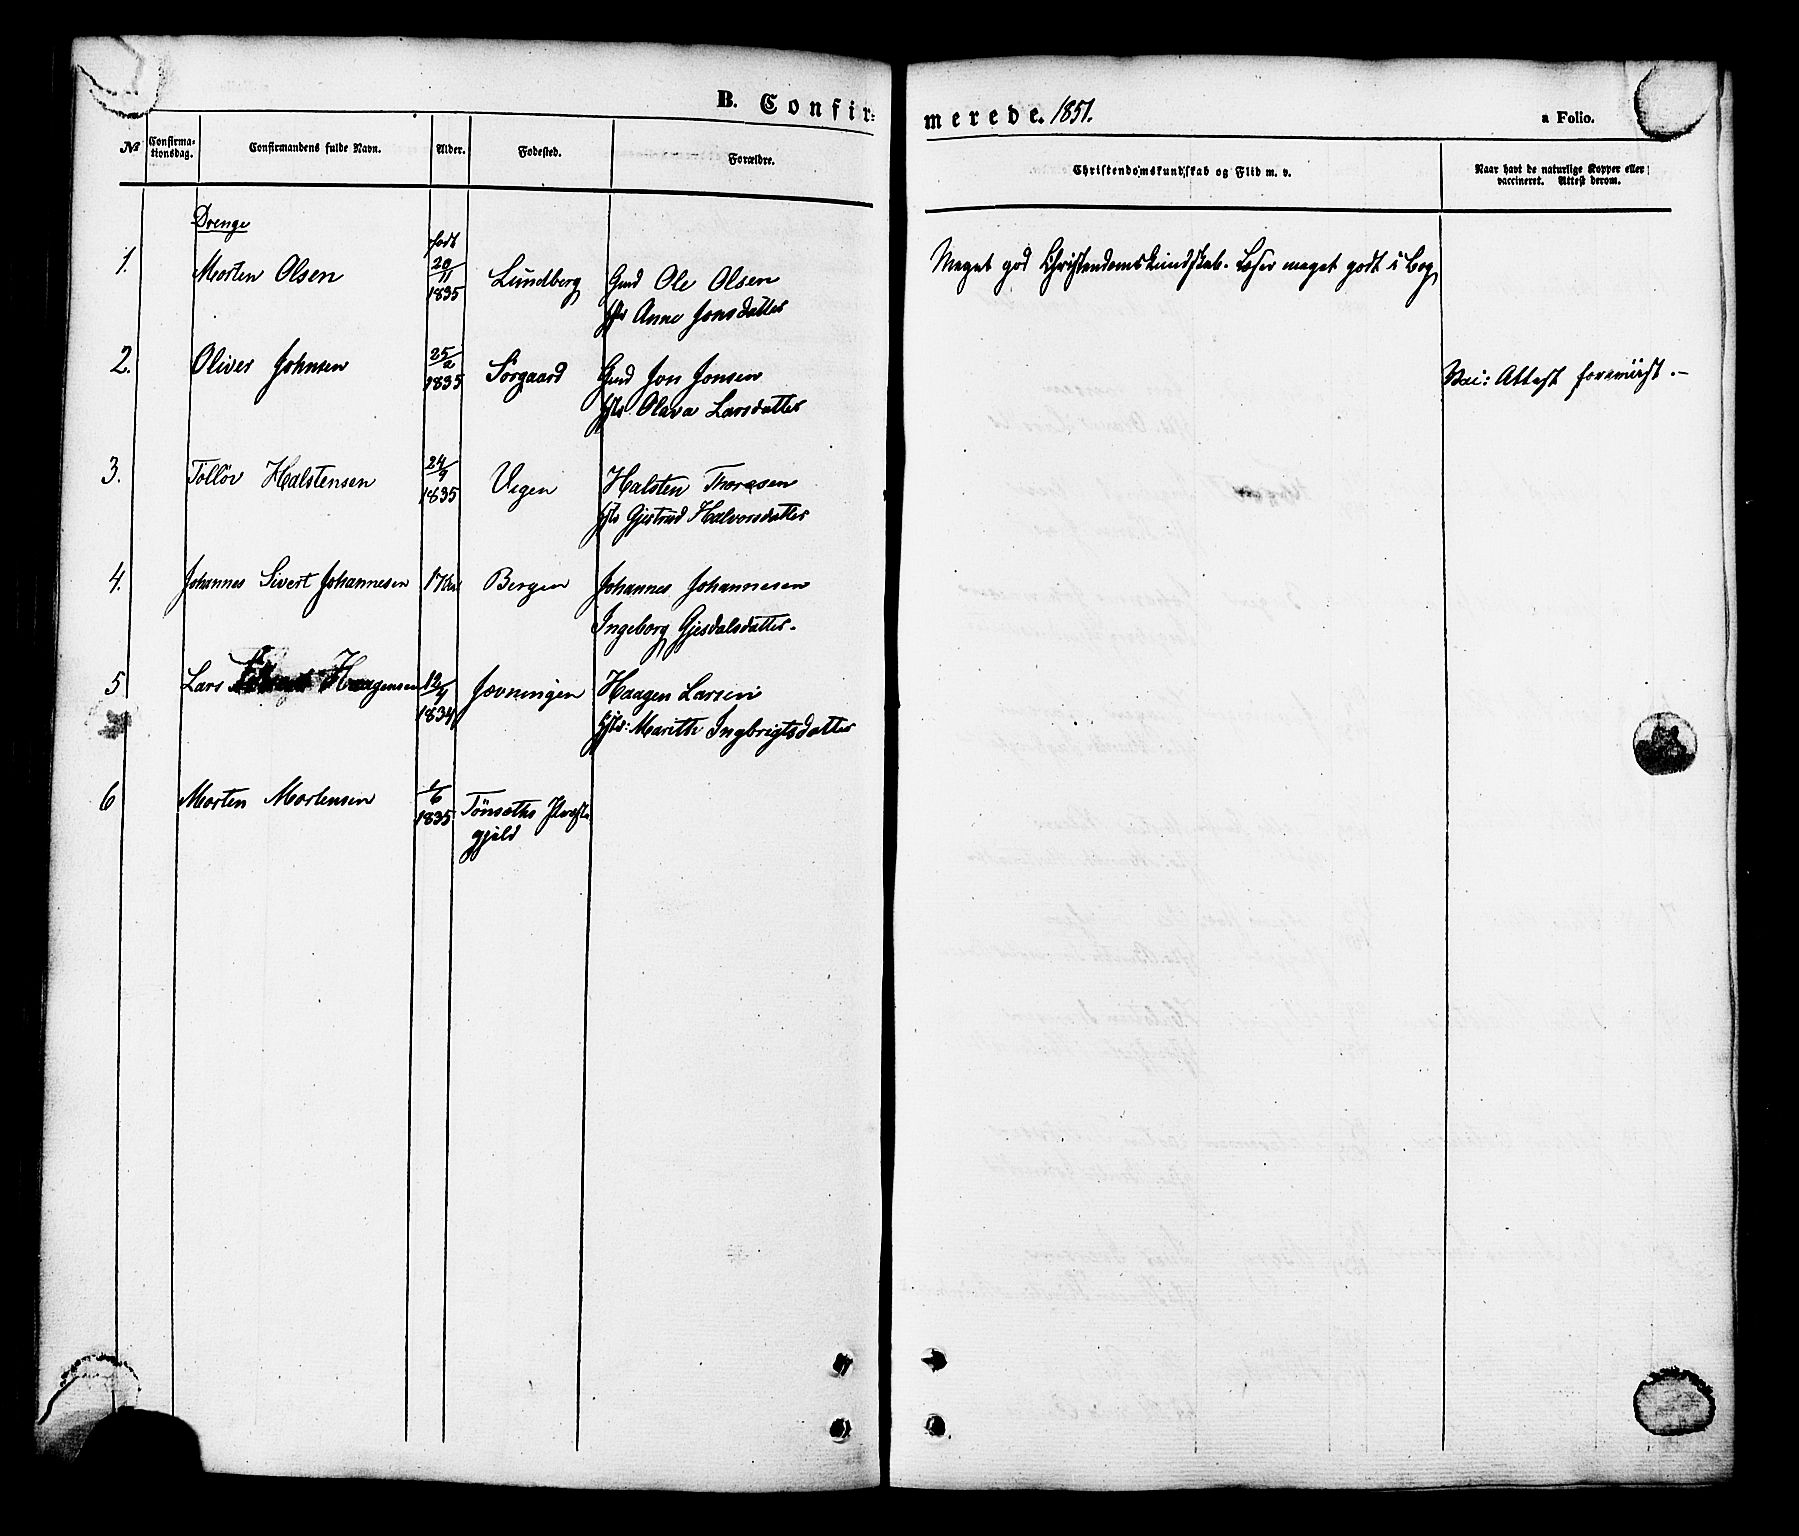 B. Confir-
merede. 1851.
a Folio.
No
Confirma-
tionsdag.
Confirmandens fulde Navn.
Alder.
Fodested.
Forældre.
Christendomskundskab og Flid m. v.
Naar havt de naturlige Kopper eller
vaccineret. Attest derom.
Drenge
født
1. Morten Olsen 20/11 1835 Lundberg Gmd Ole Olsen
Anne Jonsdatter
Meget god Christendomskundskab. Læser meget godt i Bog
2. Oliver Johnsen 25/2 1835 Sørgaard Gmd Jon Jonsen
Olava Larsdatter
Vac: Attest foreviist.-
3. Tolløv Halstensen 24/9 1835 Vegen Halsten Thoresen
Gjertrud Halvorsdatter
4. Johannes Sivert Johannesen 17 Bergen Johannes Johannesen
Ingeborg Gjesdalsdatter.
5 Lars Haagensen 12/4 1834 Jævningen Haagen Larsen
Marithe Ingbrigtsdatter
6 Morten Mortensen 1/6 1835 Tönsæths Præste
gjeld